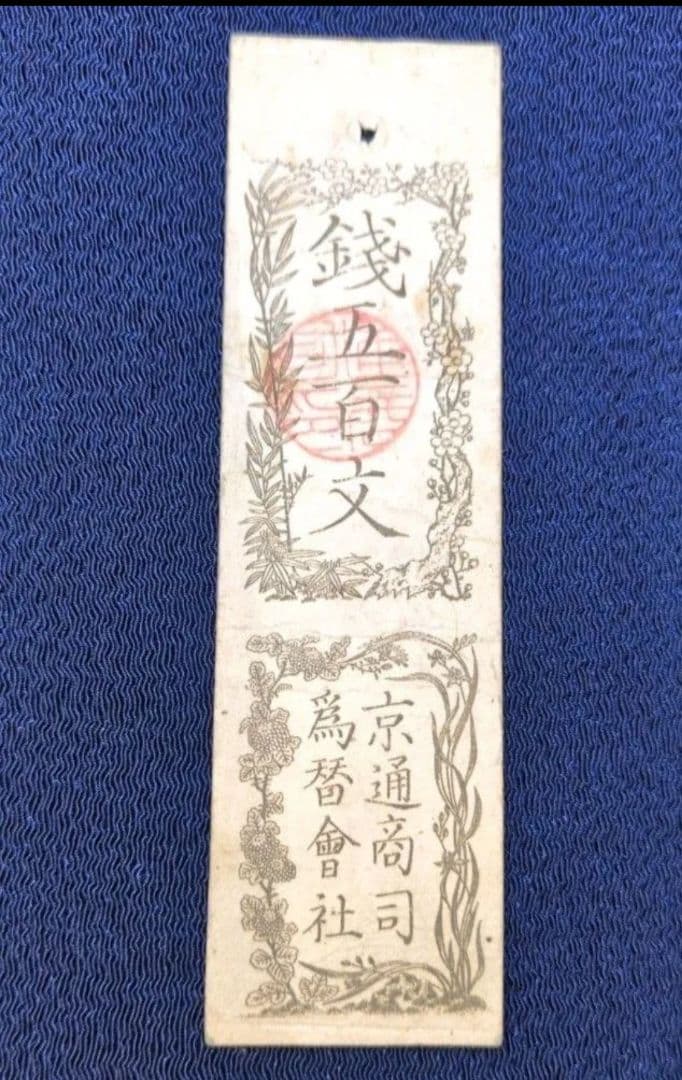 錢五百文
京通商司
爲替會社